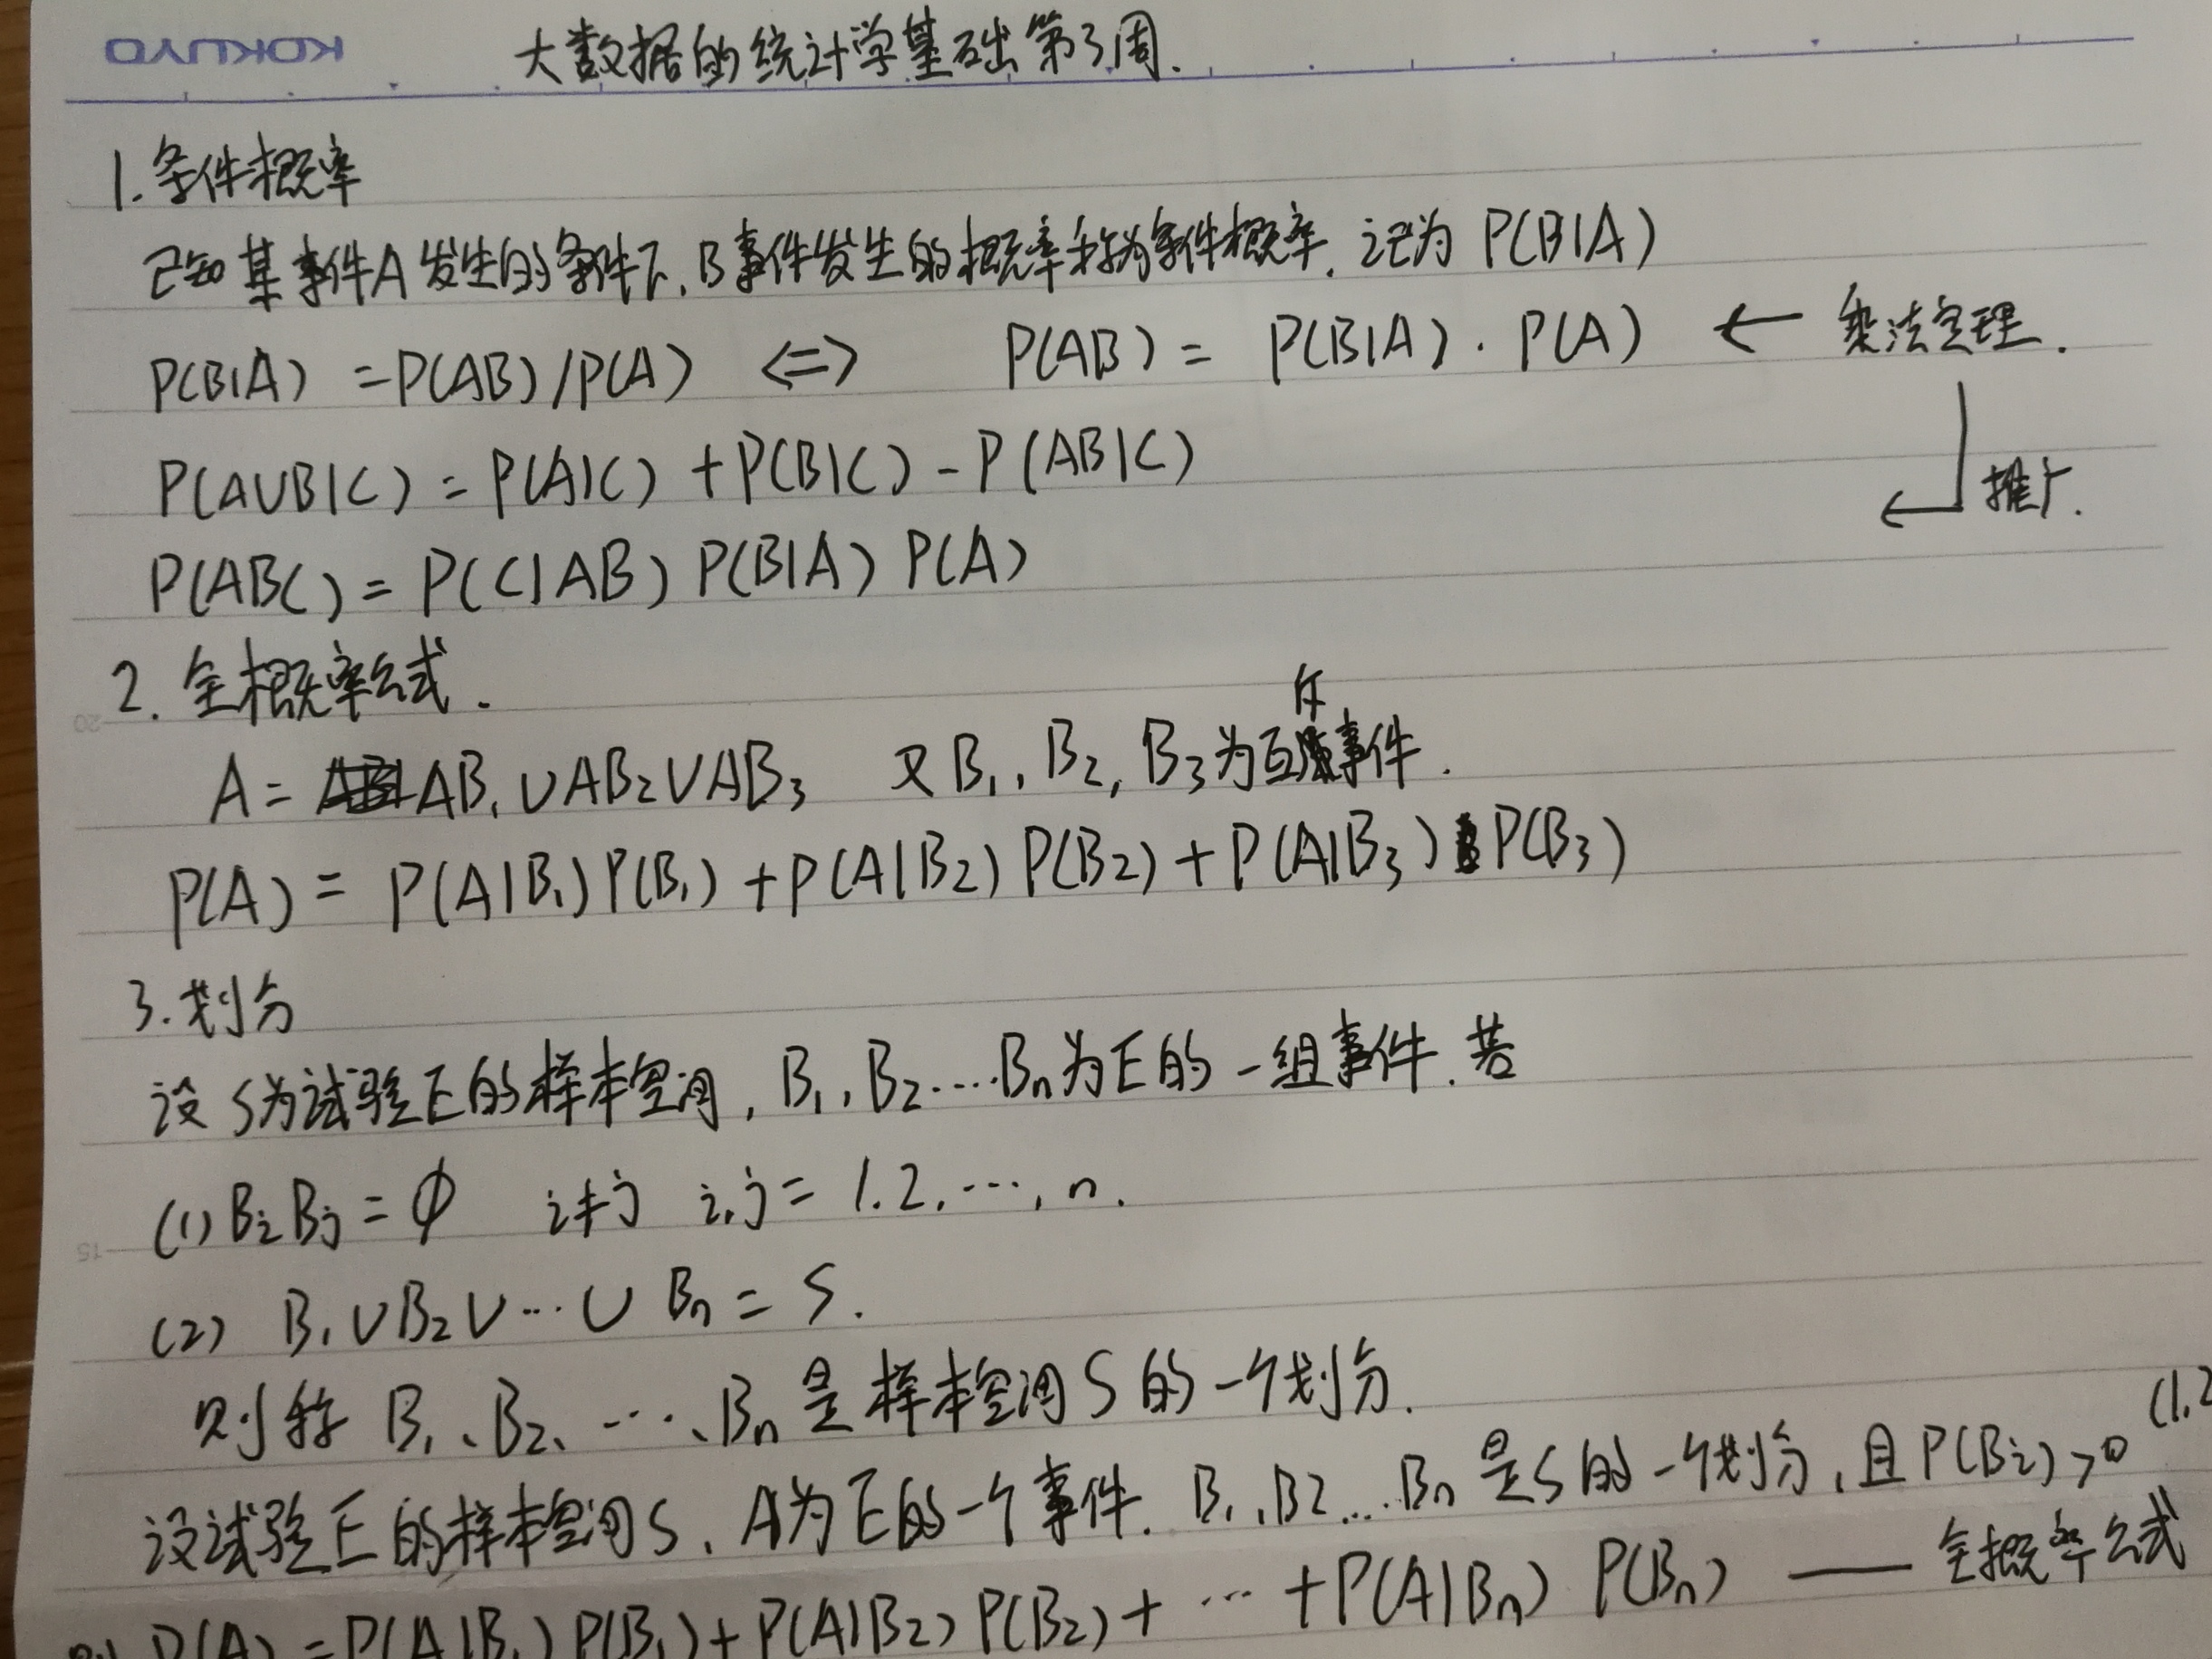 KOKUYO
大数据的统计学基础第3周.
1.条件概率
已知某事件A发生的条件下,B事件发生的概率称为条件概率.记为 P(B|A)
P(B|A) =P(AB)/P(A) <=> P(AB) = P(B|A)·P(A) ← 乘法定理.
P(A∪B|C) = P(A|C) + P(B|C) - P(AB|C)
推广.
P(ABC) = P(C|AB) P(B|A) P(A)
2. 全概率公式.
20
斥
A = AB₁∪AB₂∪AB₃ 又B₁, B₂, B₃为互事件.
P(A) = P(A|B₁)P(B₁) + P(A|B₂) P(B₂) + P(A|B₃) P(B₃)
3.划分
设S为试验E的样本空间, B₁, B₂....Bₙ为E的一组事件.若
(1) BᵢBⱼ = ϕ i≠j i,j = 1.2.…, n.
15
(2) B₁∪B₂∪…∪ Bₙ = S.
则称 B₁、B₂、…、Bₙ 是样本空间S的一个划分.
设试验E的样本空间S, A为E的一个事件. B₁,B₂...Bₙ 是S的一个划分,且P(Bᵢ)>0 (1,2
则 P(A) = P(A|B₁) P(B₁) + P(A|B₂) P(B₂) + … + P(A|Bₙ) P(Bₙ) —— 全概率公式